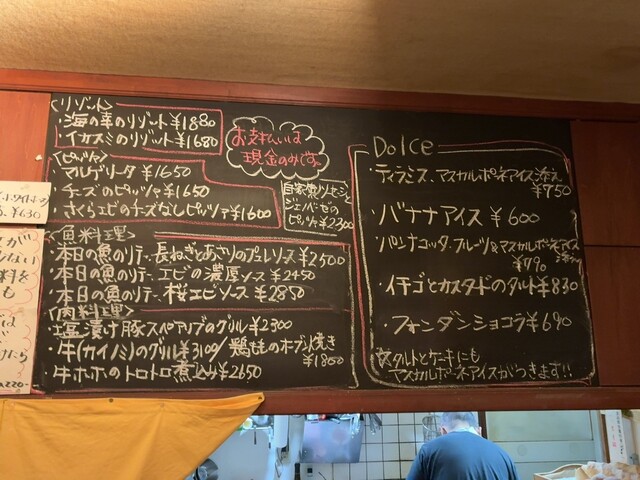 <リゾット>
・海の幸のリゾット¥1880
・イカスミのリゾット¥1680
<ピッツァ>
・マルゲリータ ¥1650
・チーズのピッツァ ¥1650
・さくらエビのチーズなしピッツァ ¥1600
お支払いは
現金のみです。
自家製ソーセージと
ジェノベーゼの
ピッツァ¥2300
<魚料理>
・本日の魚のソテー、長ねぎとあさりのブールソース ¥2500
・本日の魚のソテー、エビの濃厚ソース ¥2450
・本日の魚のソテー、桜エビソース ¥2850
<肉料理>
・塩漬け豚スペアリブのグリル ¥2300
・牛(カイノミ)のグリル¥3100/鶏ももオーブン焼き
¥1800
・牛ホホのトロトロ煮込み ¥2650
Dolce
・ティラミス、マスカルポーネアイス添え
¥750
・バナナアイス ¥600
・パンナコッタ、フルーツ&マスカルポーネアイス
添え
¥790
・イチゴとカスタードのタルト ¥830
・フォンダンショコラ ¥690
☆タルトとケーキにも
マスカルポーネアイスがつきます!!
¥630